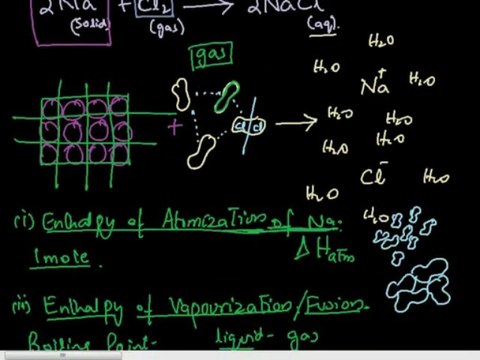 2Na + Cl2 → 2NaCl
(solid) (gas) (aq.)
gas
H2O
H2O
Na+ H2O
H2O H2O
H2O H2O
Cl Cl
+ →
Cl- H2O
H2O
H2O
(i) Enthalpy of Atomization of Na.
1 mole. ΔHatm
(ii) Enthalpy of Vapourization/Fusion.
Boiling Point- liquid - gas